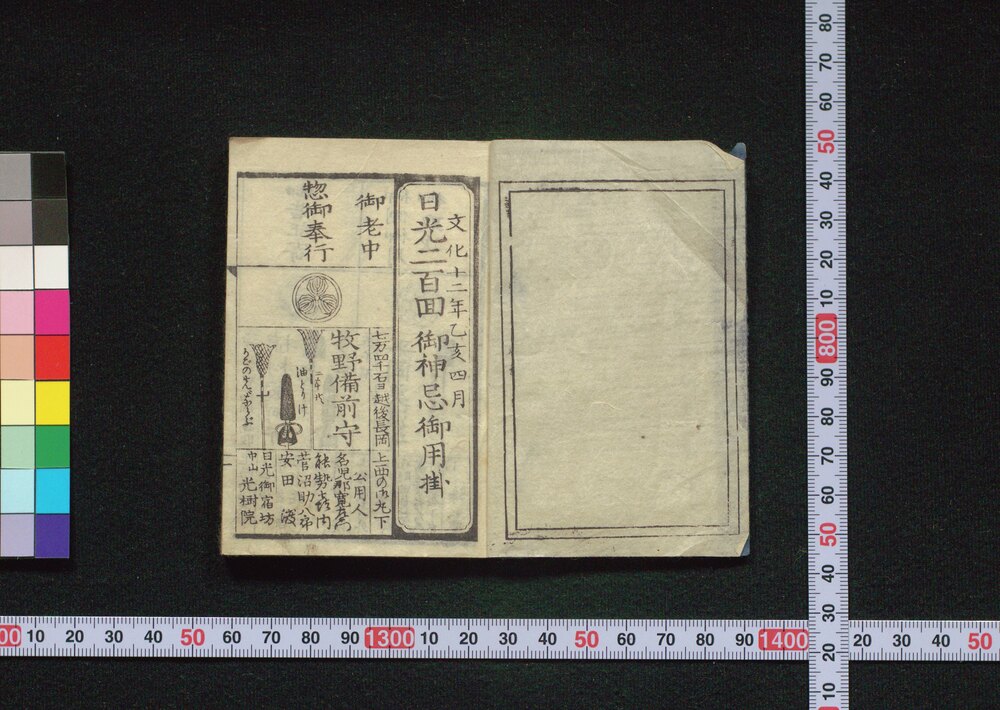 文化十二年乙亥四月
日光二百回御神忌御用掛
御老中
惣御奉行
七万四千石ヨ越後長岡
上西の御丸下
牧野備前守
公用人
名児耶
菅沼助八
安田
日光御宿坊
中山光樹院
80
70
60
50
40
30
20
10
800
90
80
70
60
50
40
30
20
10
00 10 20 30 40 50 60 70 80 90 1300 10 20 30 40 50 60 70 80 90 1400 20 30 40 50